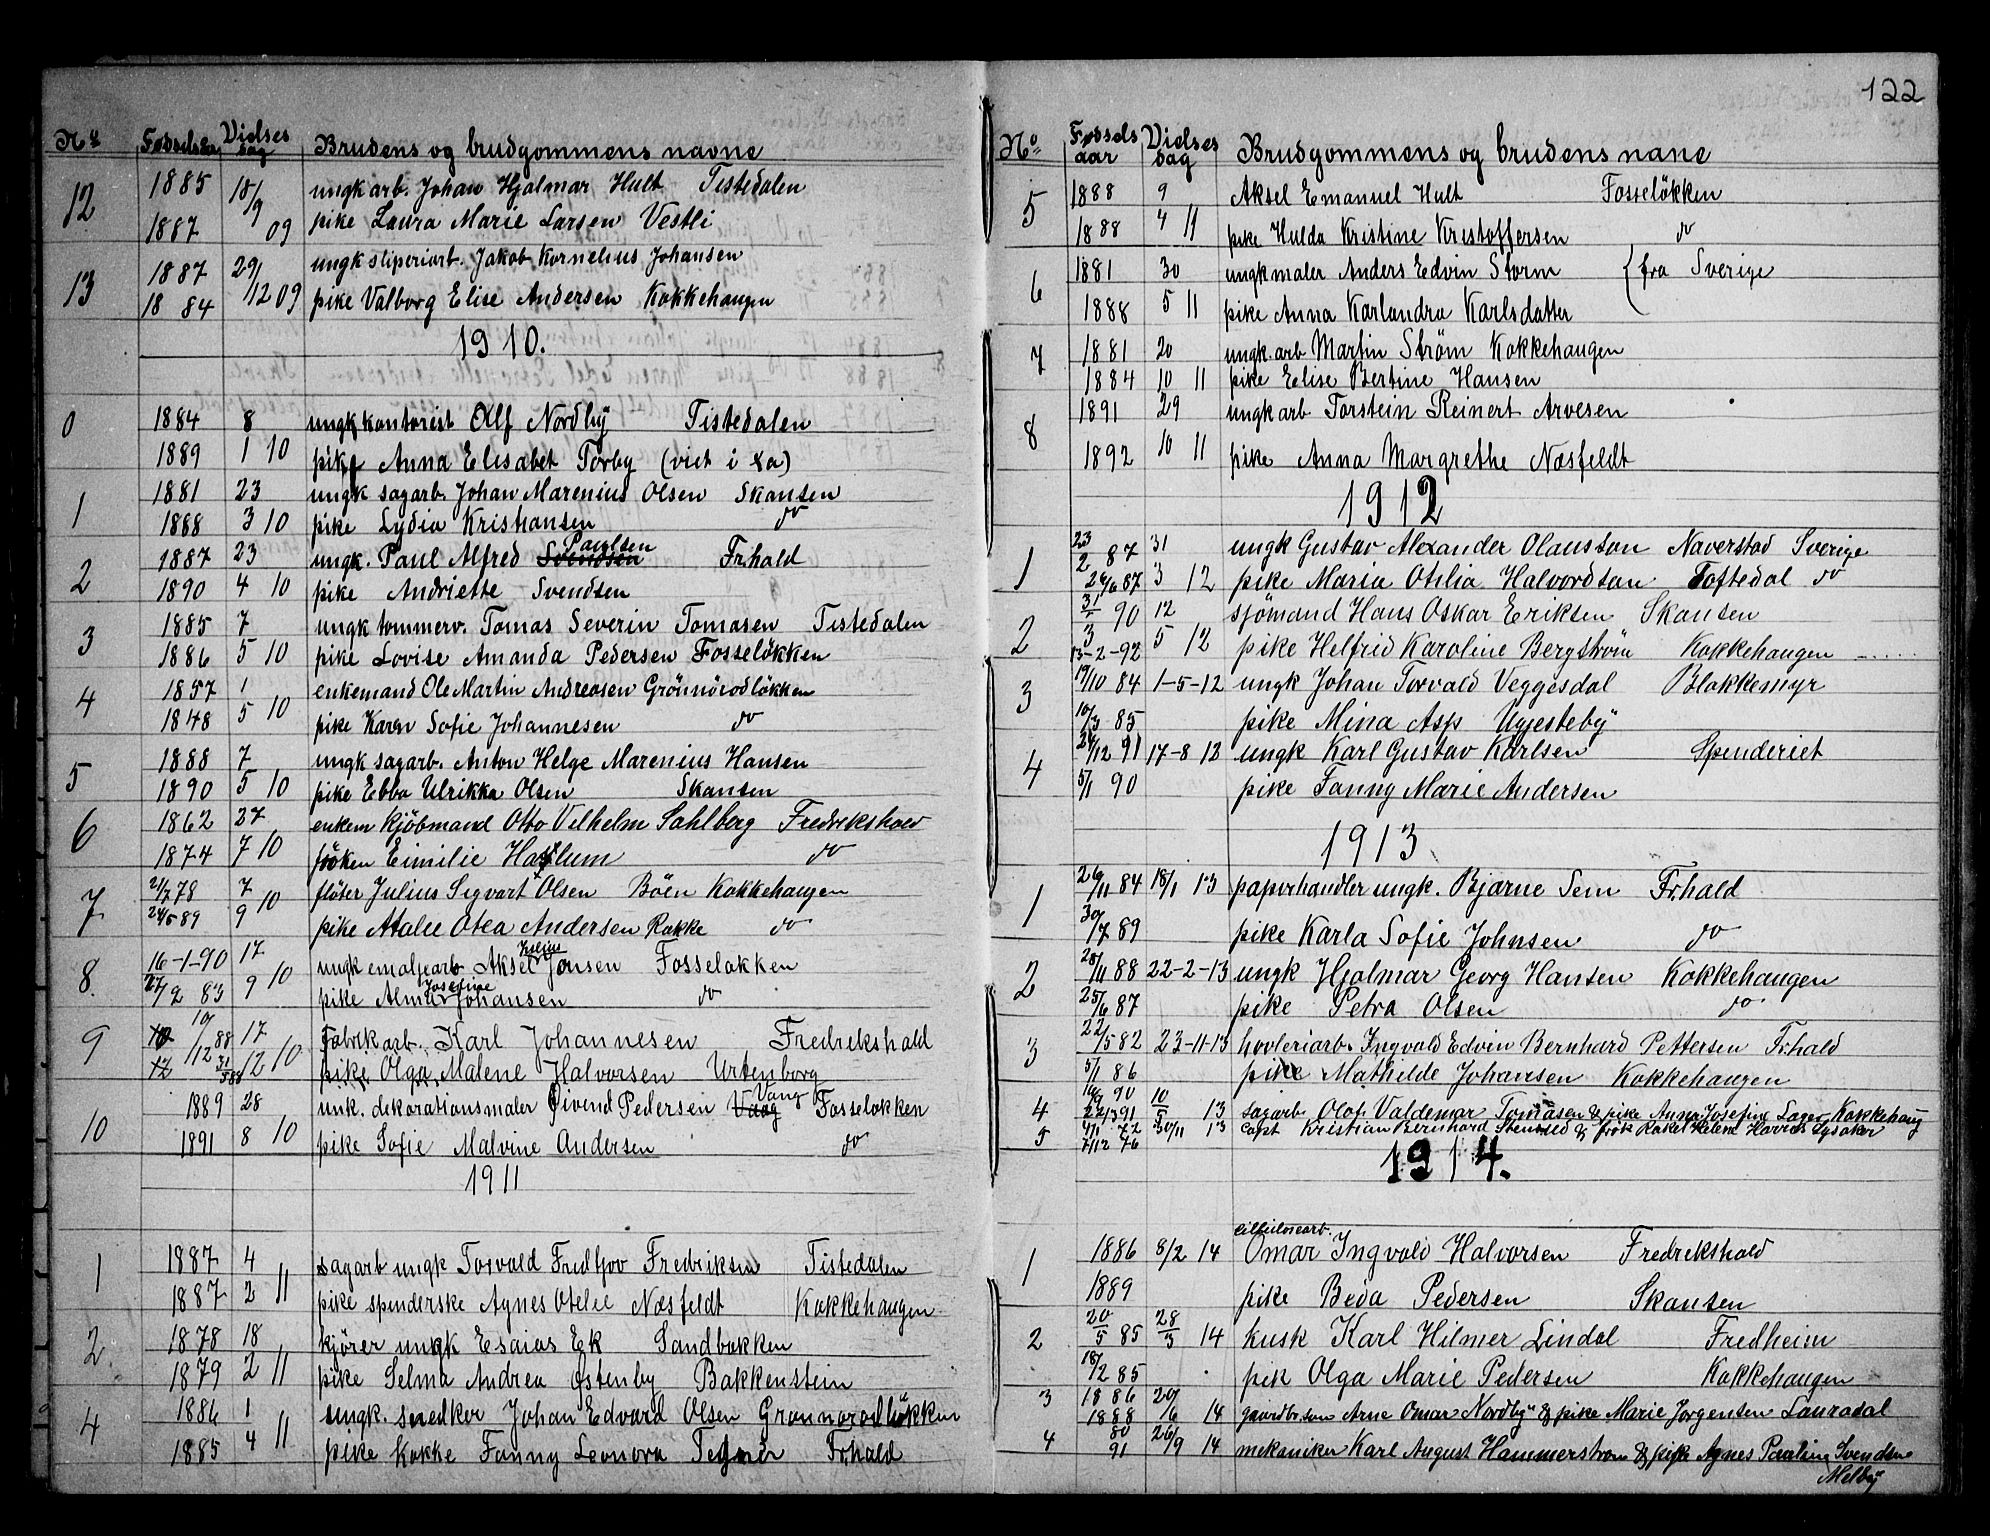 No Fødselsaar Vielses dag Brudens og brudgommens navne
12 1885 18/9 09 ungk arb. Johan Hjalmar Hult Tistedalen
1887 pike Laura Marie Larsen Vestli
13 1887 29/12 09 ungk sliperiarb. Jakob Kornelius Johansen
1884 pike Valborg Elise Andersen Kokkehaugen
1910.
0 1884 8 ungk kontorist Alf Nordby Tistedalen
1889 1 10 pike Anna Elisabet Torby (viet i Xa)
1 1881 23 ungk sagarb. Johan Marenius Olsen Skansen
1888 3 10 pike Lydia Kristiansen do
2 1887 23 ungk. Paul Alfred Svendsen Paulsen Fr.hald
1890 4 10 pike Andriette Svendsen
3 1885 7 ungk tommerv. Tomas Severin Tomasen Tistedalen
1886 5 10 pike Lovise Amanda Pedersen Fosseløkken
4 1857 1 enkemand Ole Martin Andreasen Grönnörodløkken
1848 5 10 pike Karen Sofie Johannesen do
5 1888 7 ungk sagarb. Anton Helge Marenius Hansen
1890 5 10 pike Ebba Ulrikka Olsen Skansen
6 1862 27 enkem kjöbmand Otto Vilhelm Sahlberg Fredrikshald
1874 7 10 fröken Eimilie Haslum do
7 21/7 78 7 fløter Julius Sigvart Olsen Böen Kokkehaugen
24/5 89 9 10 pike Atalie Otea Andersen Rokke do
8. 16-1-90 17 ungk emaljearb Aksel Julius Jonsen Fosseløkken
27/2 83 9 10 pike Alma Josefine Johansen do
9 10/12 88 17 Fabrikarb. Karl Johannesen Fredrikshald
31/5 88 12 10 pike Olga Malene Halvorsen Urtenborg
10 1889 28 unk. dekorationsmaler Øivend Pedersen Vaag Vang Fosseløkken
1891 8 10 pike Sofie Malvine Andersen do
1911
1 1887 4 sagarb ungk Torvald Fredtjov Fredriksen Tistedalen
1887 2 11 pike spenderske Agnes Otelie Næsfeldt Kokkehaugen
2. 1878 18 kjörer ungk Esaias Ek Sandbakken
1879 2 11 pike Selma Andrea Østenby Bakkenstein
4 1886 1 ungk. snedker Johan Edvard Olsen Grønnørodløkken
1885 4 11 pike Kokke Fanny Leonora Tegnér Fr.hald
122
No Fødsels aar Vielses dag Brudgommens og brudens nane
5 1888 9 Aksel Emanuel Hult Fosseløkken
1888 4 11 pike Hulda Kristine Kristoffersen do
6 1881 30 ungk maler Anders Edvin Storm { fra Sverige
1888 5 11 pike Anna Karlandra Karlsdatter
7 1881 20 ungk. arb Martin Strøm Kokkehaugen
1884 10 11 pike Elise Bertine Hansen
8 1891 29 ungk arb Torstein Reinert Arvesen
1892 10 11 pike Anna Margrethe Næsfeldt
1912
1 23/2 87 31 ungk Gustav Alexander Olausson Naverstad Sverige
26/6 87 3 12 pike Maria Otilia Halvordsan Toftedal do
2 31/3 90 12 sjömand Hans Oskar Eriksen Skansen
13-2-92 5 12 pike Helfrid Karoline Bergström Kokkehaugen
3 17/10 84 1-5-12 ungk Johan Torvald Veggesdal Blakkemyr
10/3 85 pike Mina Asp Ugjesteby
4 24/12 91 17-8 12 ungk Karl Gustav Karlsen Spenderiet
5/1 90 pike Fanny Marie Andersen
1913
1 26/11 84 18/1 13 papirhandler ungk. Bjarne Sem Fr.hald
30/7 89 pike Karla Sofie Johnsen do
2 28/11 88 22-2-13 ungk Hjalmar Georg Hansen Kokkehaugen
25/6 87 pike Petra Olsen do
3 22/5 82 23-11-13 hovleriarb. Ingvald Edvin Bernhard Pettersen Fr.hald
5/1 86 pike Mathilde Johansen Kokkehaugen
4 16/9 90 22/3 91 10/5 13 sagarb Olof Valdemar Tomasen & pike Anna Josefine Lager Kokkehaug
5 72 7/12 76 30/11 13 capt Kristian Bernhard Stensed & frøk Rakel Helene Lysaker
1914.
1 1886 8/2 14 Omar Ingvald Halvorsen Fredrikshald
1889 pike Beda Pedersen Skansen
2 20/5 85 28/3 14 kusk Karl Hilmer Lindal Fredheim
18/2 85 pik Olga Marie Pedersen Kokkehaugen
3 1886 1888 20/6 14 gaardbr.søn Arne Omar Nordby & pike Marie Jorgensen Lauradal
4 80 91 26/9 14 mekaniker Karl August Hammerstrom & pike Agnes Pauline Svendsen
Melby